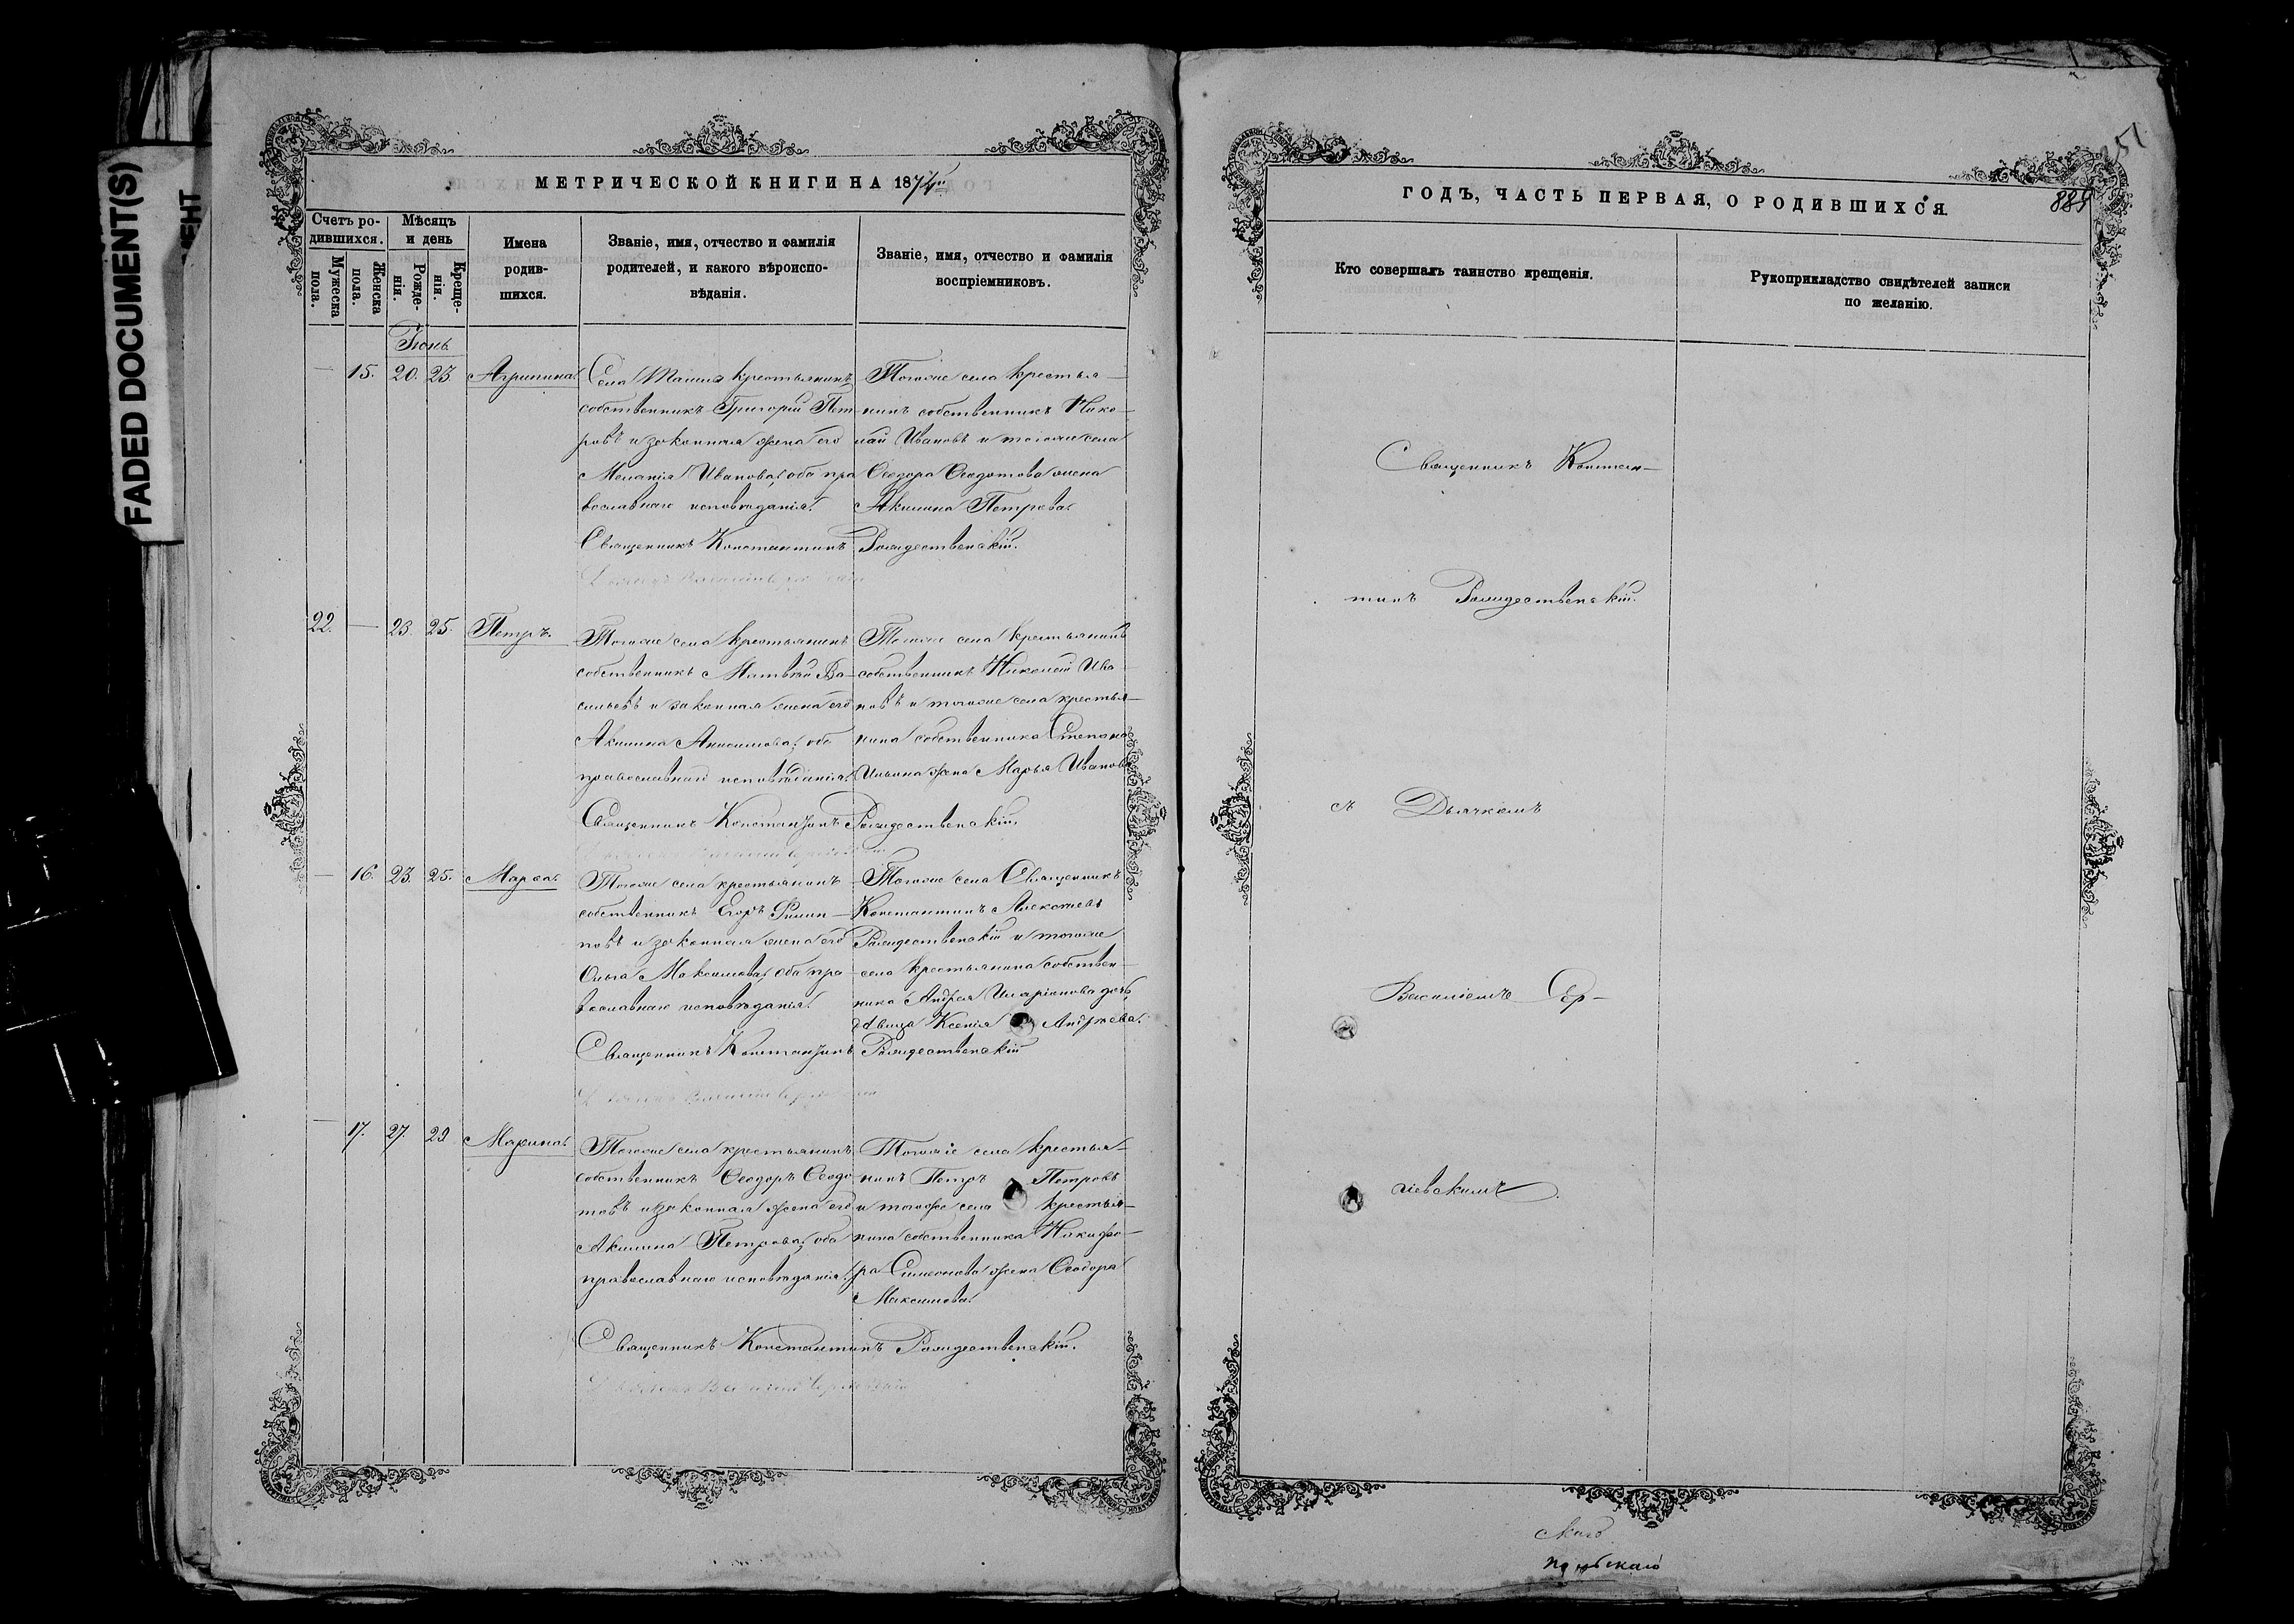 FADED DOCUMENT(S)
МЕТРИЧЕСКОЙ КНИГИ НА 1874й
Счетъ ро-
дившихся.
Мѣсяцъ
и день
Мужеска
пола.
Женска
пола.
Рожде-
нія.
Креще-
нія.
Имена
родив-
шихся.
Званіе, имя, отчество и фамилія
родителей, и какого вѣроиспо-
вѣданія.
Званіе, имя, отчество и фамилія
воспріемниковъ.
Іюнь
— 15. 20. 23. Агрипина.
Села крестьянинъ
собственникъ Григорій Пет-
ровъ и законная жена его
Меланія Иванова, оба пра
вославнаго исповѣданія.
Тогоже села крестья-
нинъ собственникъ Нико-
лай Ивановъ и тогоже села
Ѳеодора Ѳеодотова жена
Акилина Петрова.
Священникъ Константинъ Рождественскій.
22. — 23. 25. Петръ.
Тогоже села крестьянинъ
собственникъ Матвѣй Ва-
сильевъ и законная жена его
Акилина Анисимова, оба
православнаго исповѣданія.
Тогоже села крестьянинъ
собственникъ Николай Ива-
новъ и тогоже села крестья-
нина собственника Степана
Ильина жена Марья Иванова
Священникъ Константинъ Рождественскій.
— 16. 23. 25. Марѳа.
Тогоже села крестьянинъ
собственникъ Егоръ Филип-
повъ и законная жена его
Ольга Максимова, оба пра-
вославнаго исповѣданія.
Тогоже села Священникъ
Константинъ Алексѣевъ
Рождественскій и тогоже
села крестьянина собствен-
ника Андрея Иларіонова дочь,
дѣвица Ксенія Андреева.
Священникъ Константинъ Рождественскій
— 17. 27. 29 Марина.
Тогоже села крестьянинъ
собственникъ Ѳеодоръ Ѳеодо
товъ и законная жена его
Акилина Петрова, оба
православнаго исповѣданія.
Тогоже села крестья-
нинъ Петръ Петровъ
и тогоже села крестья-
нина собственника Никифо-
ра Симеонова жена Ѳеодора
Максимова.
Священникъ Константинъ Рождественскій.
ГОДЪ, ЧАСТЬ ПЕРВАЯ, О РОДИВШИХСЯ.
Кто совершалъ таинство крещенія.
Рукоприкладство свидѣтелей записи
по желанію.
Священникъ Констан-
тинъ Рождественскій.
съ Дьячкомъ
Василіемъ Сер-
гіевскимъ.